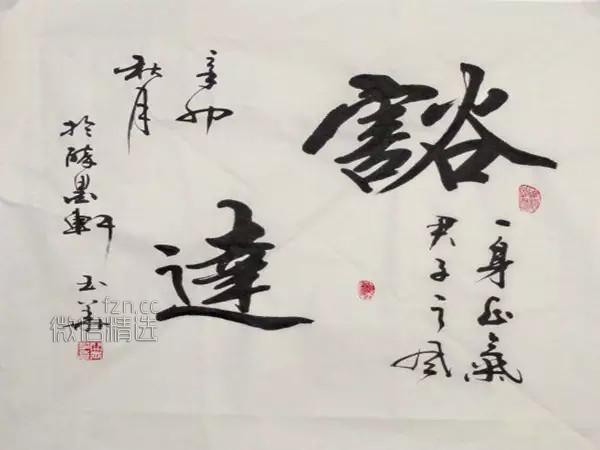 豁
達
一身正氣
君子之风
辛卯
秋月
於醉墨軒
玉華
fzn.cc
微信精选